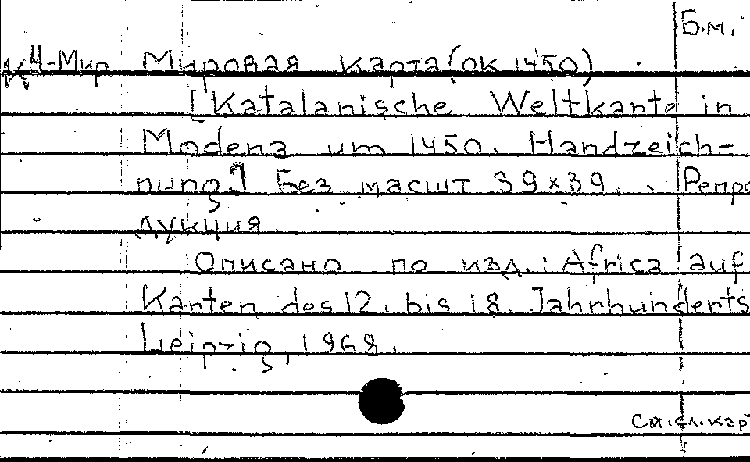 Б.м.
К Ч-Мир Мировая карта (ок 1450)
[Katalanische Weltkarte in
Modena um 1450. Handzeich-
nung] Без масшт 39x39. Репро
дукция
Описано по изд.: Africa auf
Karten des 12. bis 18. Jahrhunderts
Leipzig, 1968.
См. сл. кар